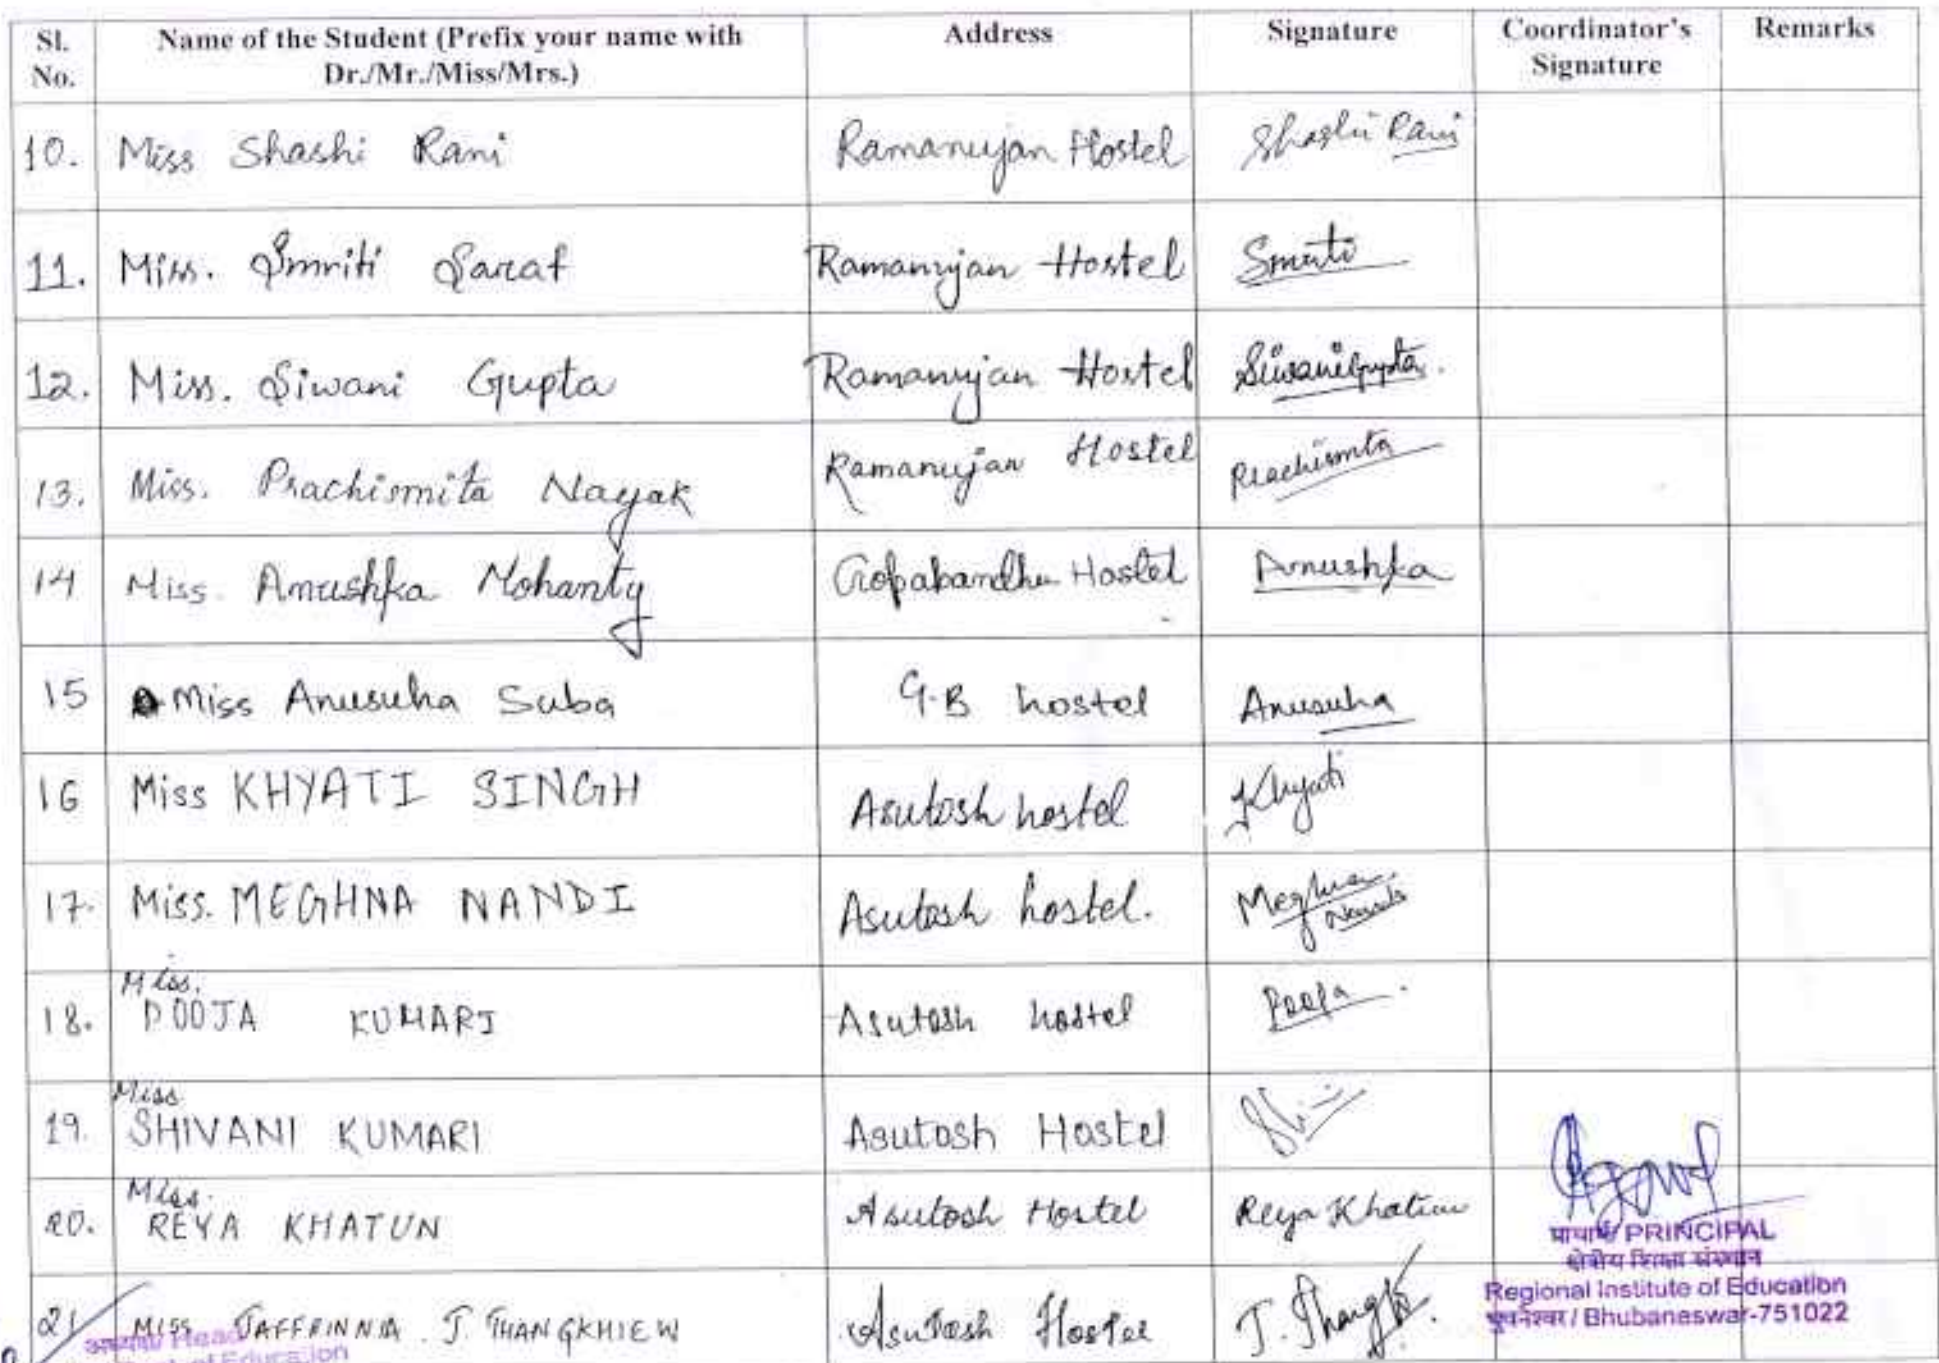 Sl. No. Name of the Student (Prefix your name with Dr./Mr./Miss/Mrs.) Address Signature Coordinator's Signature Remarks
10. Miss Shashi Rani Ramanujan Hostel Shashi Rani
11. Miss. Smriti Saraf Ramanujan Hostel Smriti
12. Miss. Siwani Gupta Ramanujan Hostel Siwani Gupta.
13. Miss. Prachismita Nayak Ramanujan Hostel Prachismita
14 Miss. Anushka Mohanty Gopabandhu Hostel Anushka
15 Miss Anusuha Suba G.B hostel Anusuha
16 Miss KHYATI SINGH Asutosh hostel Khyati
17. Miss. MEGHNA NANDI Asutosh hostel. Meghna Nandi
18. Miss. POOJA KUMARI Asutosh hostel Pooja.
19. Miss SHIVANI KUMARI Asutosh Hostel
20. Miss. REYA KHATUN Asutosh Hostel Reya Khatun
प्राचार्य/ PRINCIPAL
क्षेत्रीय शिक्षा संस्थान
Regional Institute of Education
भुवनेश्वर / Bhubaneswar-751022
21 MISS JAFFRINNIA J. THANGKHIEW Asutosh Hostel
अध्यक्ष/ Head
of Education